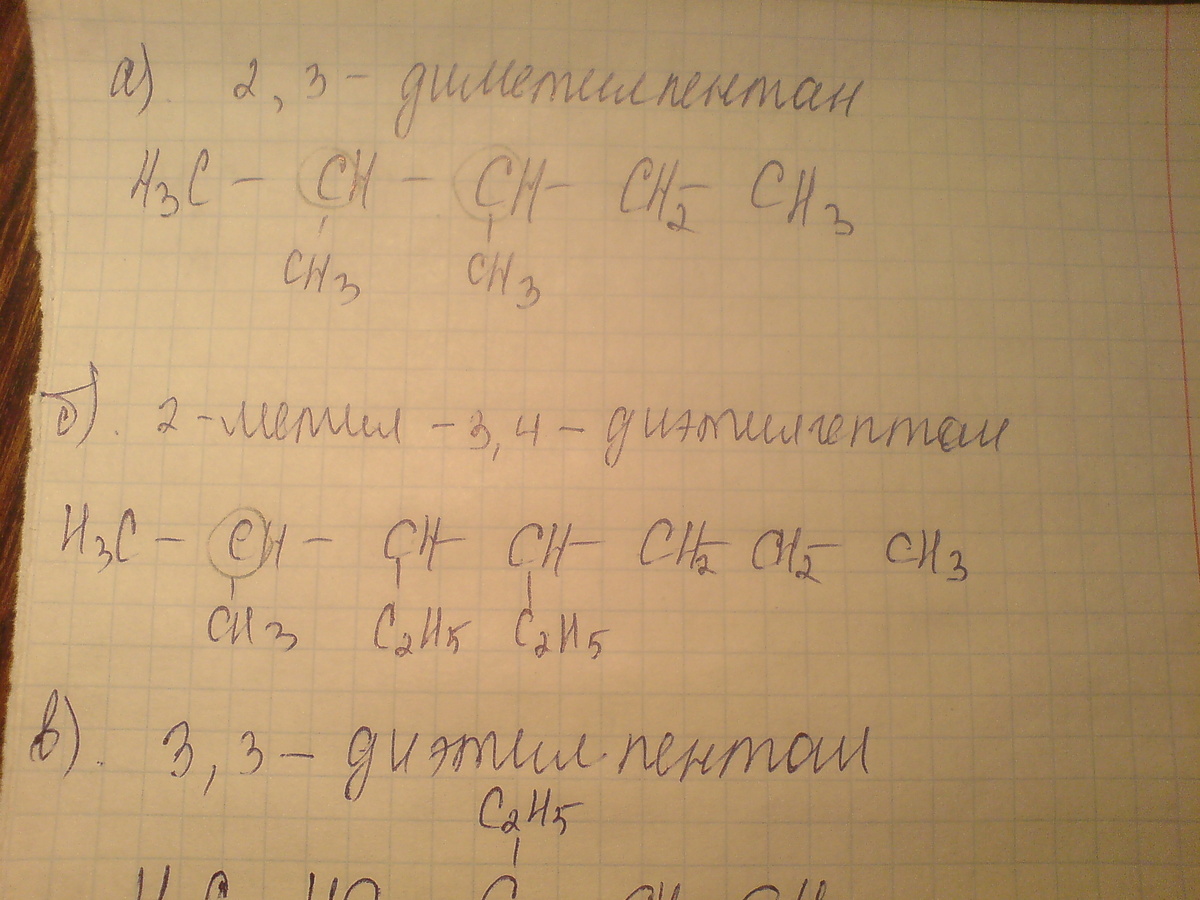 а). 2, 3 - диметилпентан
H₃C - CH - CH - CH₂ - CH₃
CH₃ CH₃
б). 2 - метил - 3, 4 - диэтилгептан
H₃C - CH - CH - CH - CH₂ - CH₂ - CH₃
CH₃ C₂H₅ C₂H₅
в). 3, 3 - диэтил пентан
C₂H₅